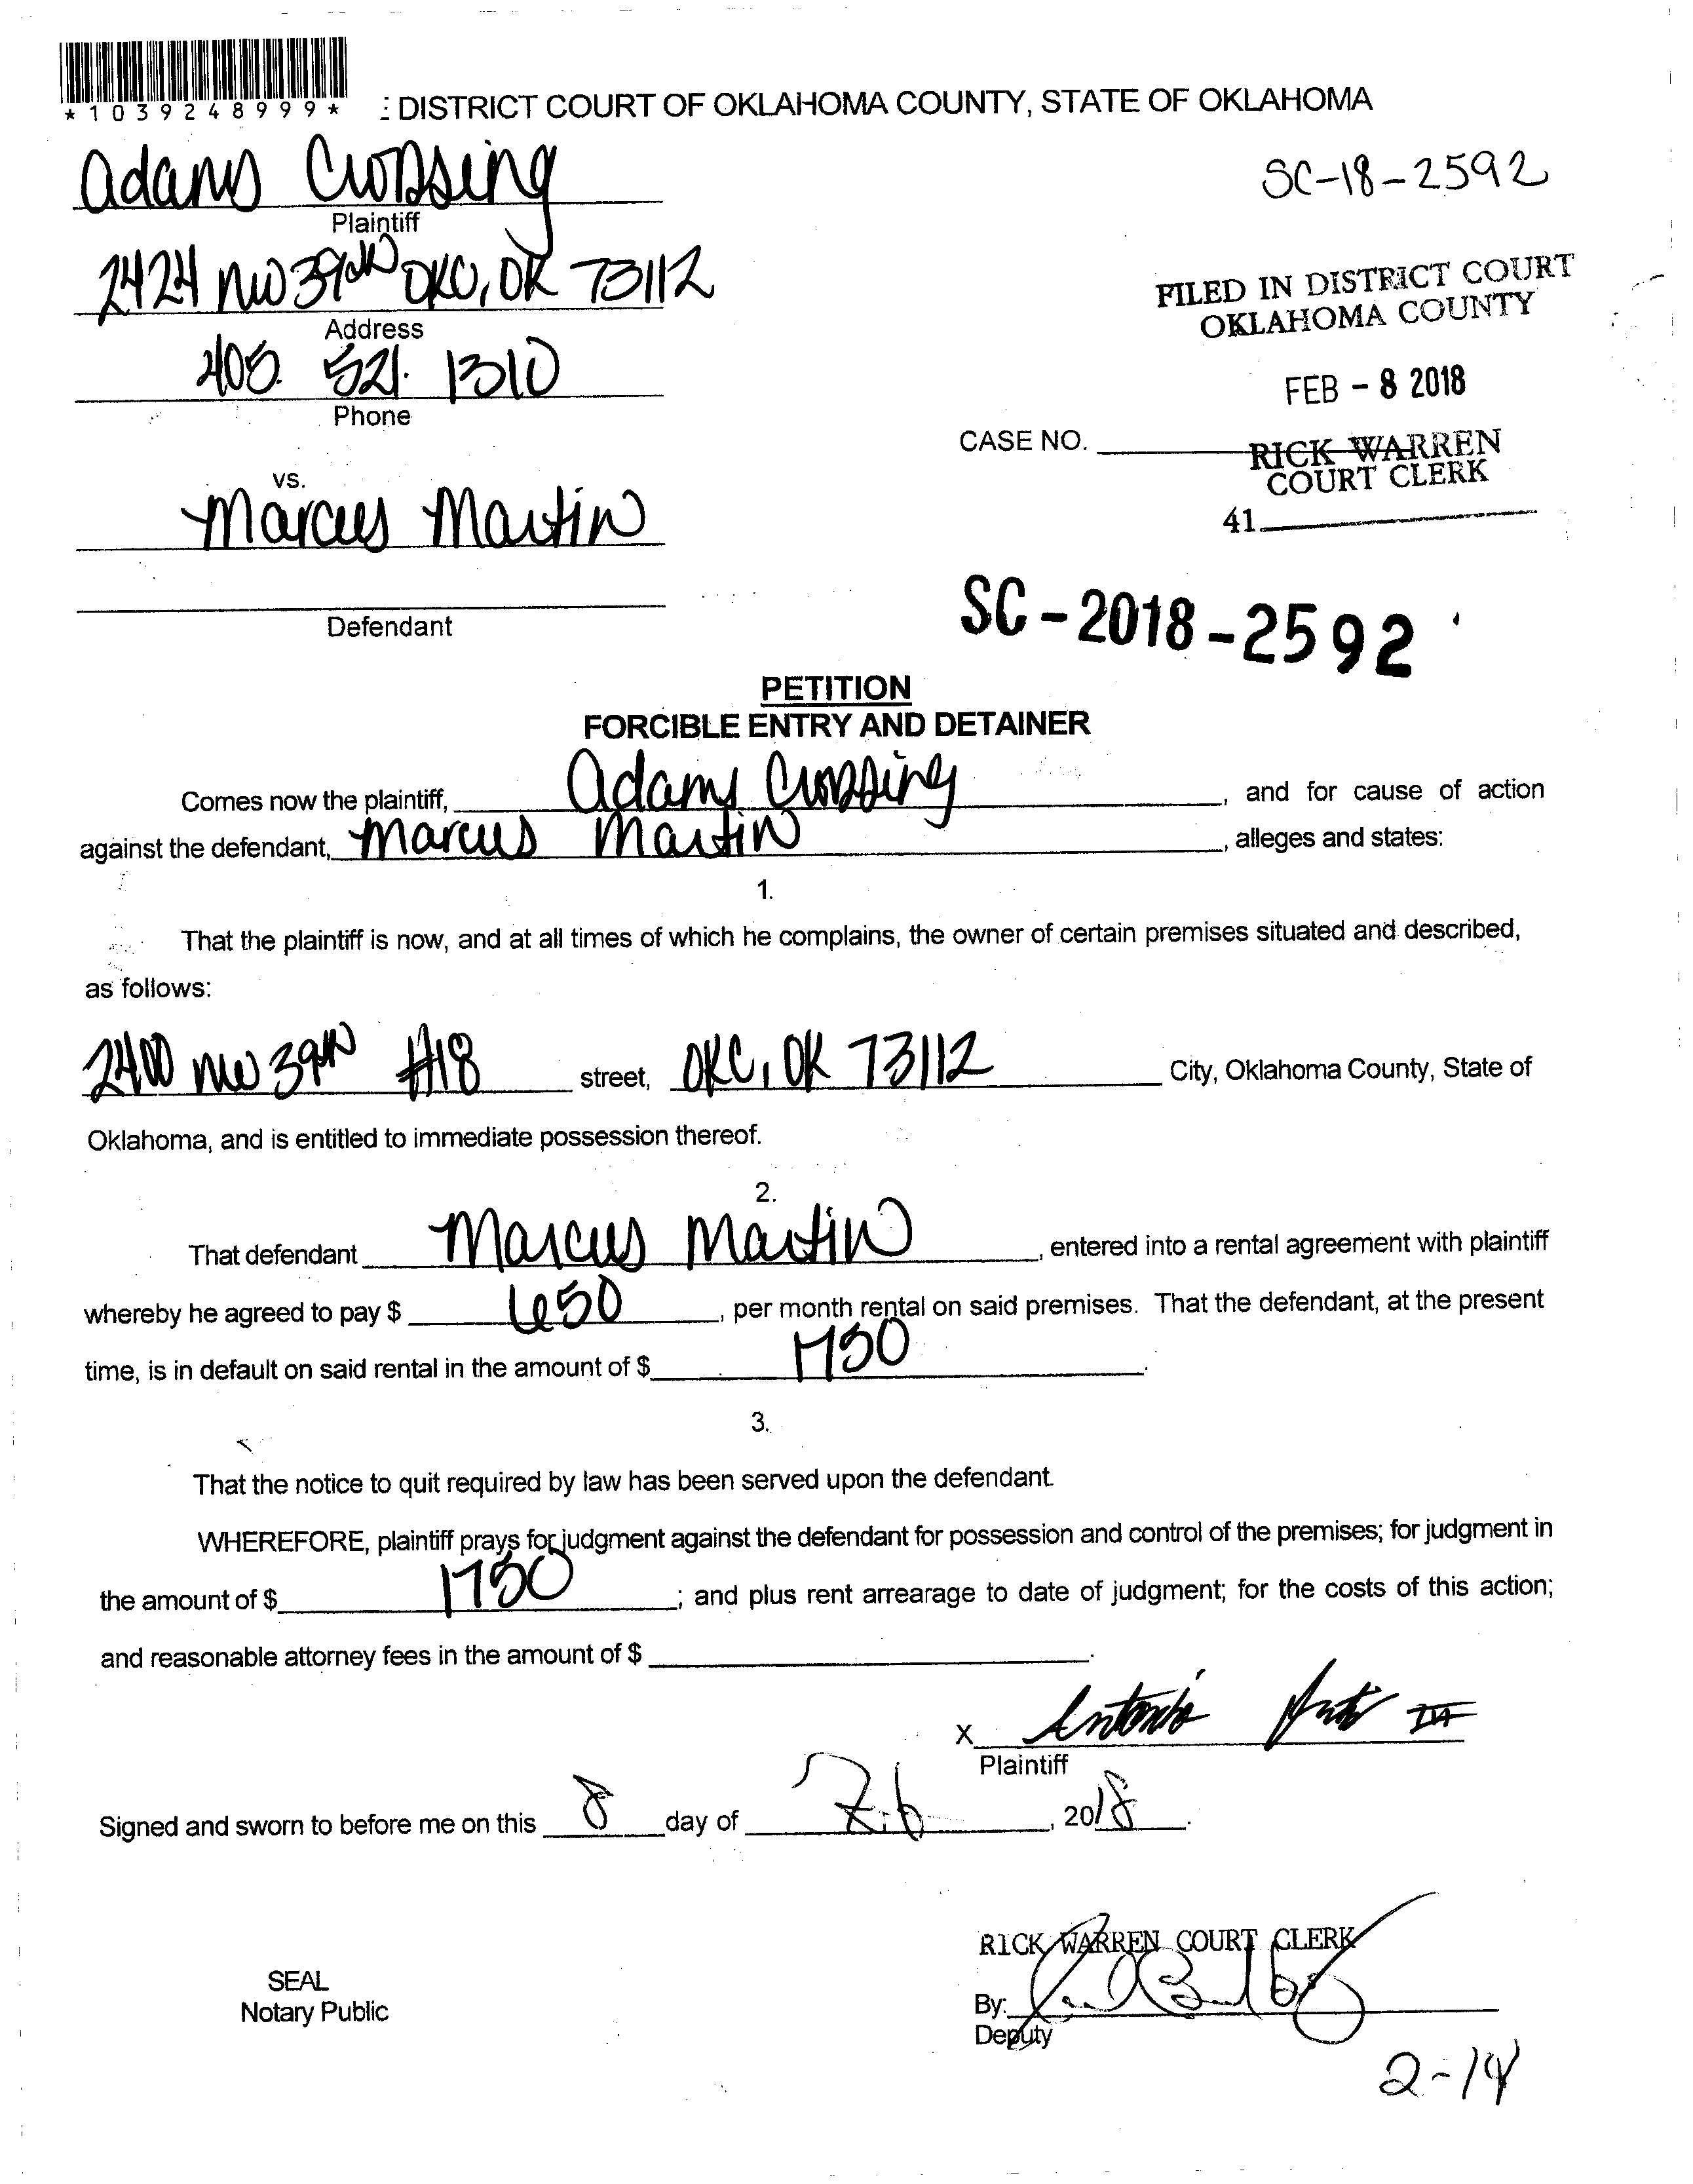 *1039248999*
: DISTRICT COURT OF OKLAHOMA COUNTY, STATE OF OKLAHOMA
Adams Crossing
Plaintiff
SC-18-2592
2424 NW 39th OKC, OK 73112
Address
FILED IN DISTRICT COURT
OKLAHOMA COUNTY
405. 521. 1310
Phone
FEB - 8 2018
CASE NO.
RICK WARREN
COURT CLERK
41
vs.
Marcus Martin
Defendant
SC-2018-2592
PETITION
FORCIBLE ENTRY AND DETAINER
Comes now the plaintiff, Adams Crossing, and for cause of action
against the defendant, Marcus Martin, alleges and states:
1.
That the plaintiff is now, and at all times of which he complains, the owner of certain premises situated and described,
as follows:
2400 NW 39th #18 street, OKC, OK 73112 City, Oklahoma County, State of
Oklahoma, and is entitled to immediate possession thereof.
2.
That defendant Marcus Martin, entered into a rental agreement with plaintiff
whereby he agreed to pay $ 650, per month rental on said premises. That the defendant, at the present
time, is in default on said rental in the amount of $ 1750.
3.
That the notice to quit required by law has been served upon the defendant.
WHEREFORE, plaintiff prays for judgment against the defendant for possession and control of the premises; for judgment in
the amount of $ 1750; and plus rent arrearage to date of judgment; for the costs of this action;
and reasonable attorney fees in the amount of $.
X Antonio III
Plaintiff
Signed and sworn to before me on this 8 day of Feb, 2018.
RICK WARREN COURT CLERK
SEAL
Notary Public
By:
Deputy
2-14